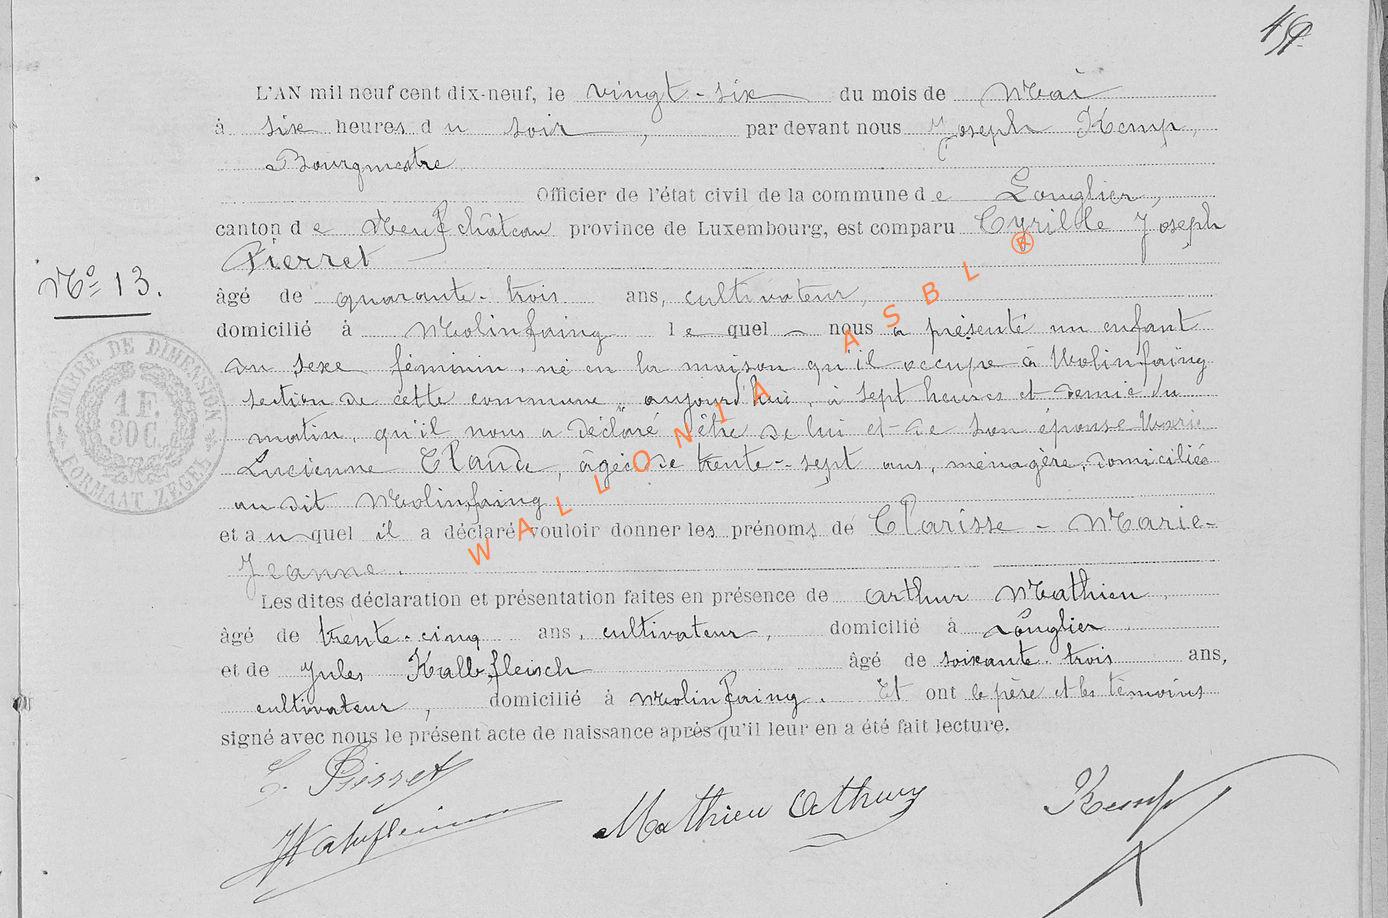 L'AN mil neuf cent dix-neuf, le vingt-six du mois de Mai
à six heures du soir, par devant nous Joseph Kemp,
Bourgmestre
Officier de l'état civil de la commune de Longlier,
canton de Neufchâteau province de Luxembourg, est comparu Cyrille Joseph
Pierret
N° 13.
âgé de quarante-trois ans, cultivateur,
domicilié à Molinfaing lequel nous a présenté un enfant
du sexe féminin, né en la maison qu'il occupe à Molinfaing
section de cette commune, aujourd'hui, à sept heures et demie du
matin, qu'il nous a déclaré être de lui et de son épouse Marie
Lucienne Claude, âgée de trente-sept ans, ménagère, domiciliée
au dit Molinfaing
et auquel il a déclaré vouloir donner les prénoms de Clarisse-Marie-
Jeanne.
Les dites déclaration et présentation faites en présence de Arthur Mathieu
âgé de trente-cinq ans, cultivateur, domicilié à Longlier
et de Jules Kalbfleisch âgé de soixante-trois ans,
cultivateur, domicilié à Molinfaing. Et ont le père et les témoins
signé avec nous le présent acte de naissance après qu'il leur en a été fait lecture.
Pierret
Mathieu Arthur
Kemp
TIMBRE DE DIMENSION
1 F.
30 C.
FORMAAT ZEGEL
WALLONIA ASBL ®